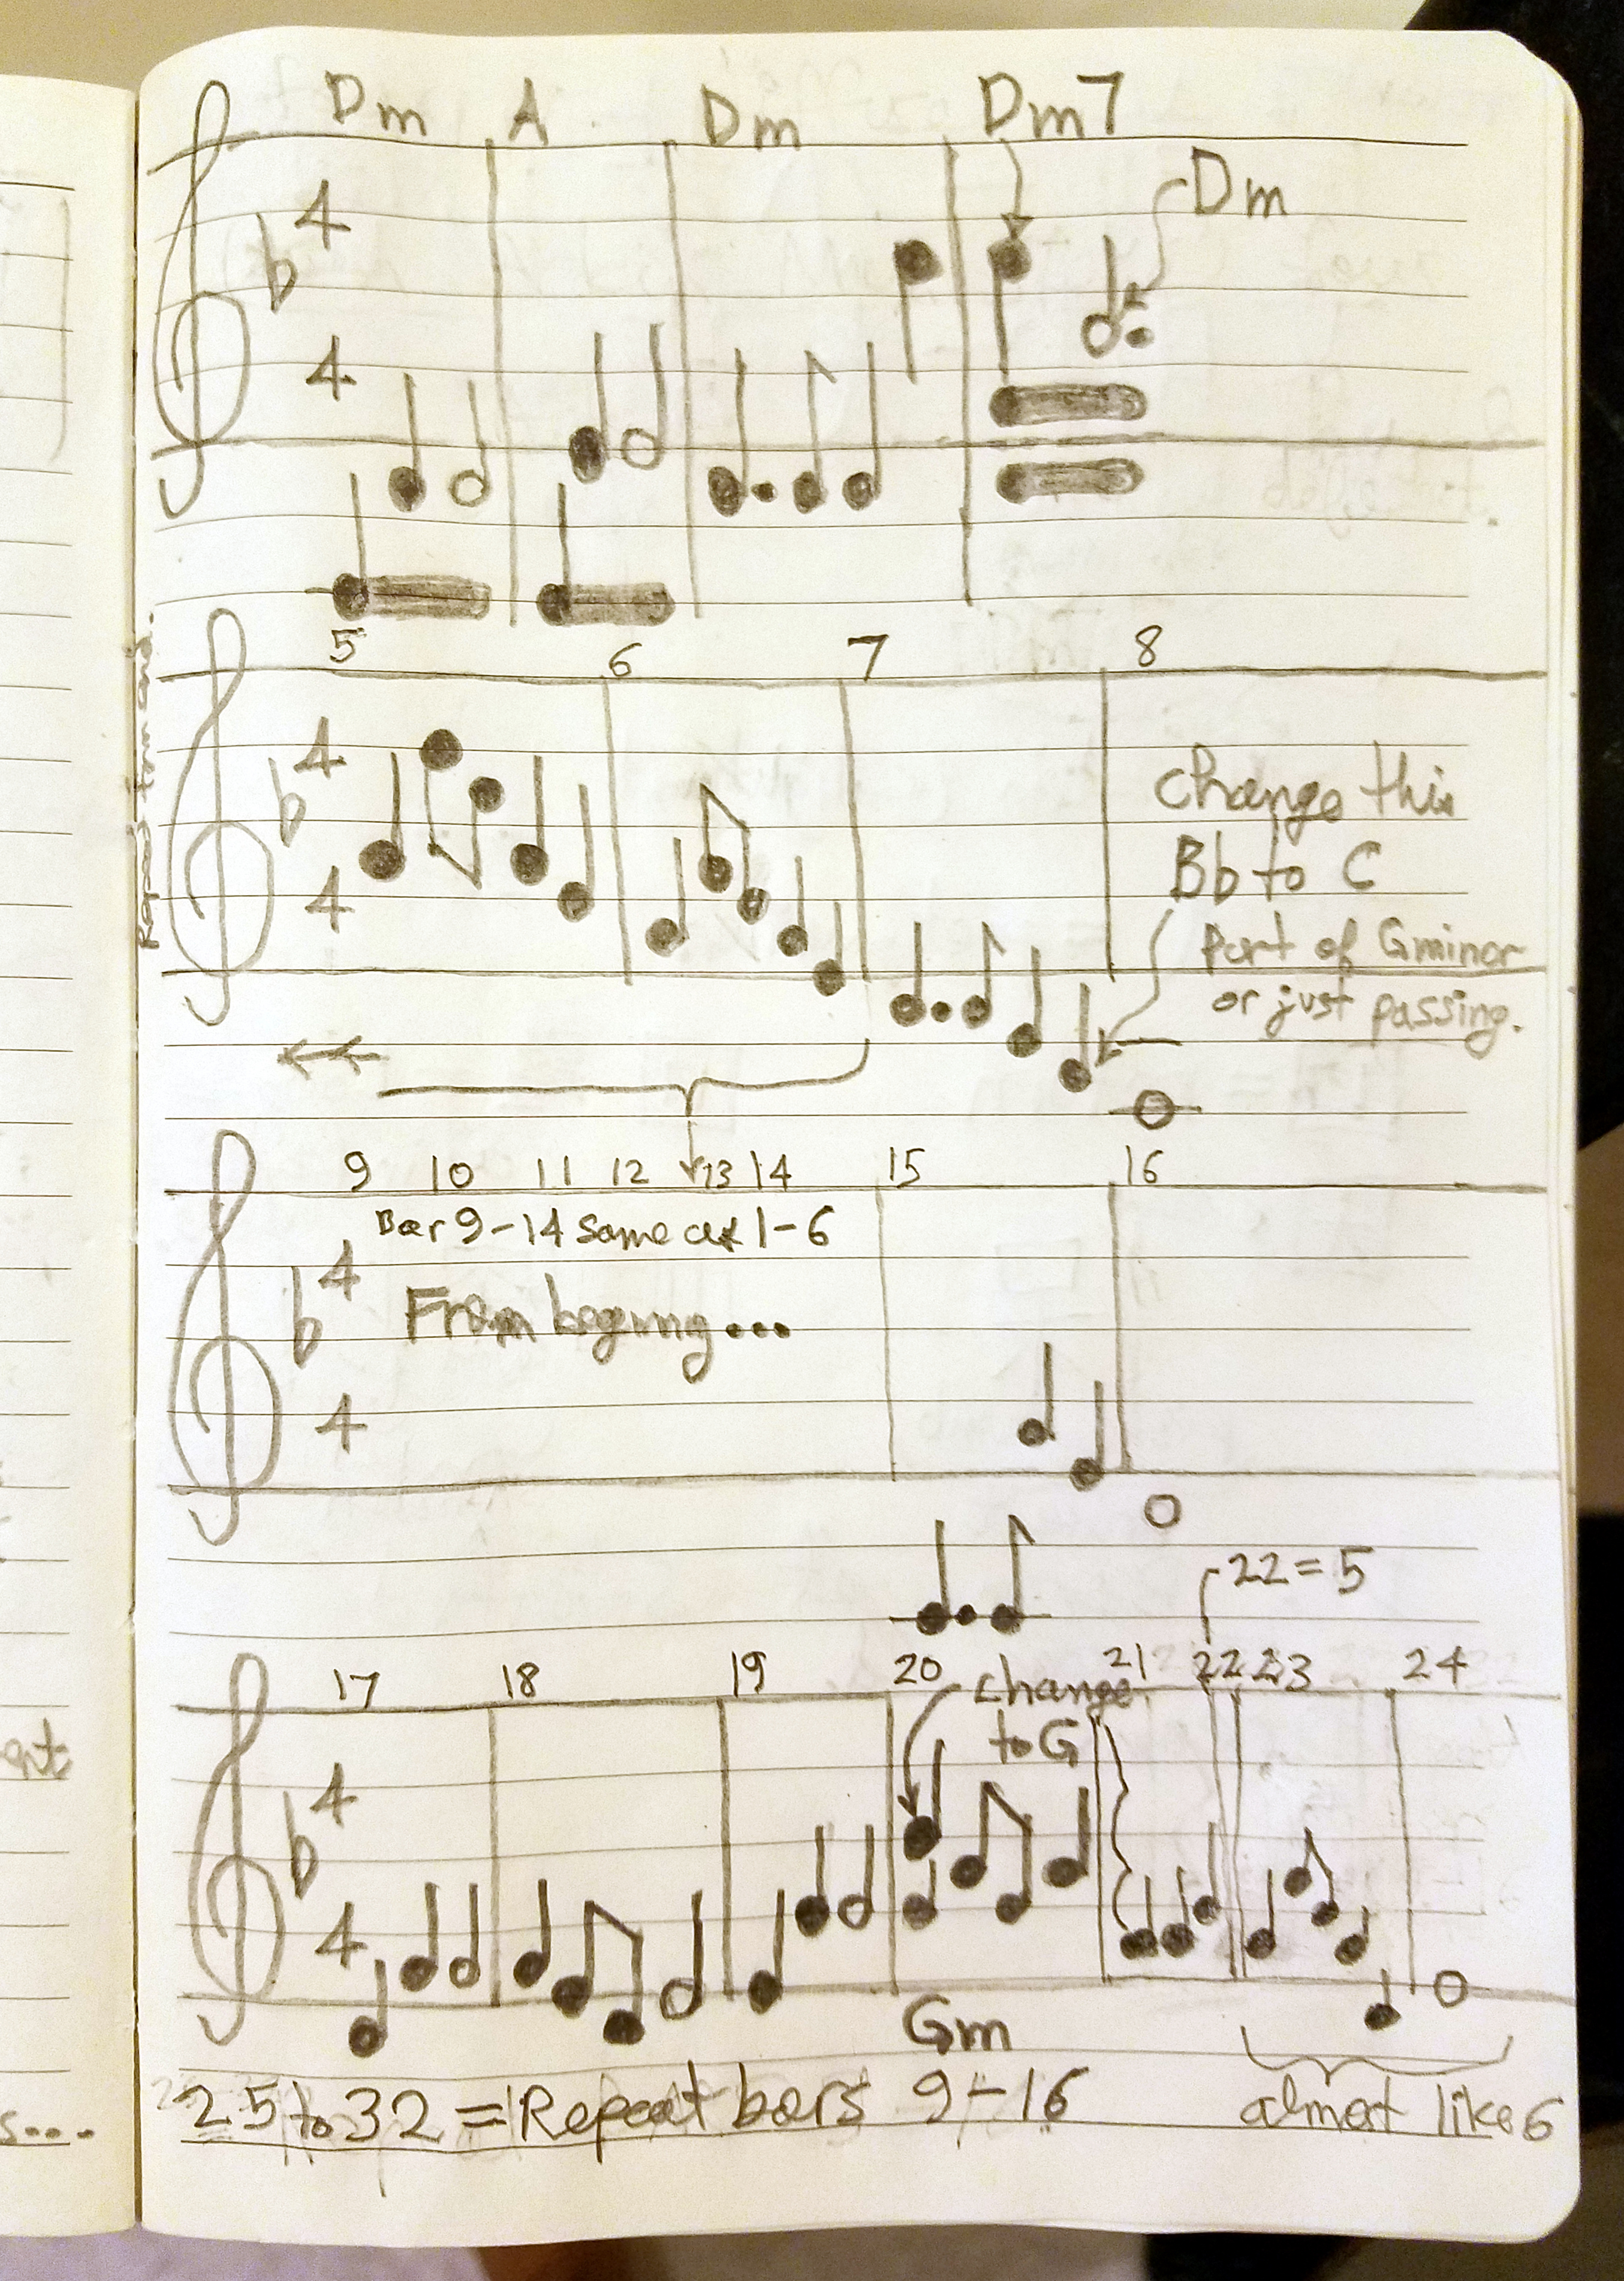 Dm A Dm Dm7
Dm
4
4
5 6 7 8
4
4
Change this
Bb to C
Part of Gminor
or just passing.
9 10 11 12 13 14 15 16
Bar 9-14 Same as 1-6
4
From begining...
4
22=5
17 18 19 20 21 22 23 24
change
to G
4
4
Gm
25 to 32 = Repeat bars 9-16
almost like 6